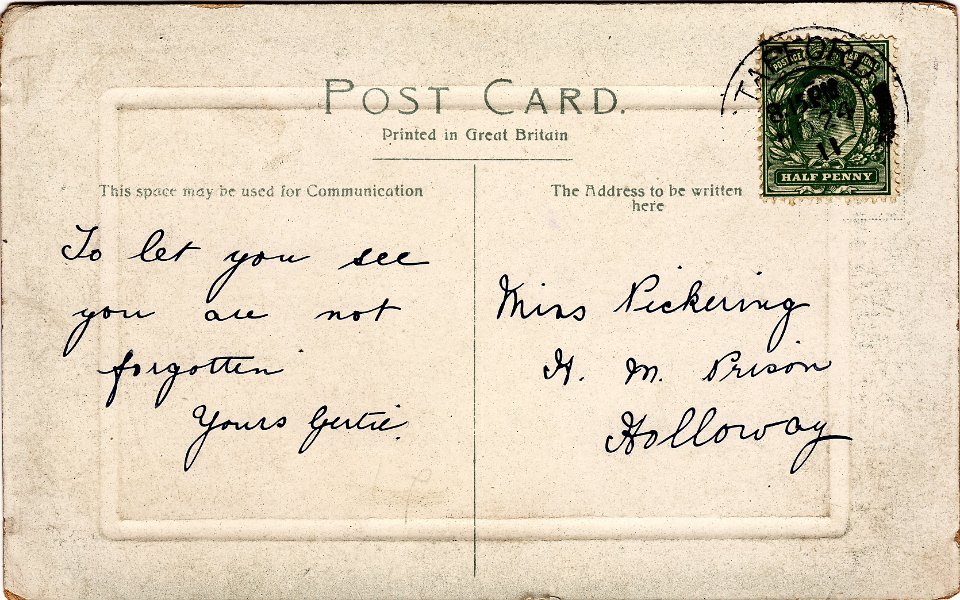 POST CARD.
Printed in Great Britain
This space may be used for Communication
The Address to be written
here
To let you see
you are not
forgotten
Yours Gertie.
Miss Pickering
H. M. Prison
Holloway
POSTAGE
HALF PENNY
11